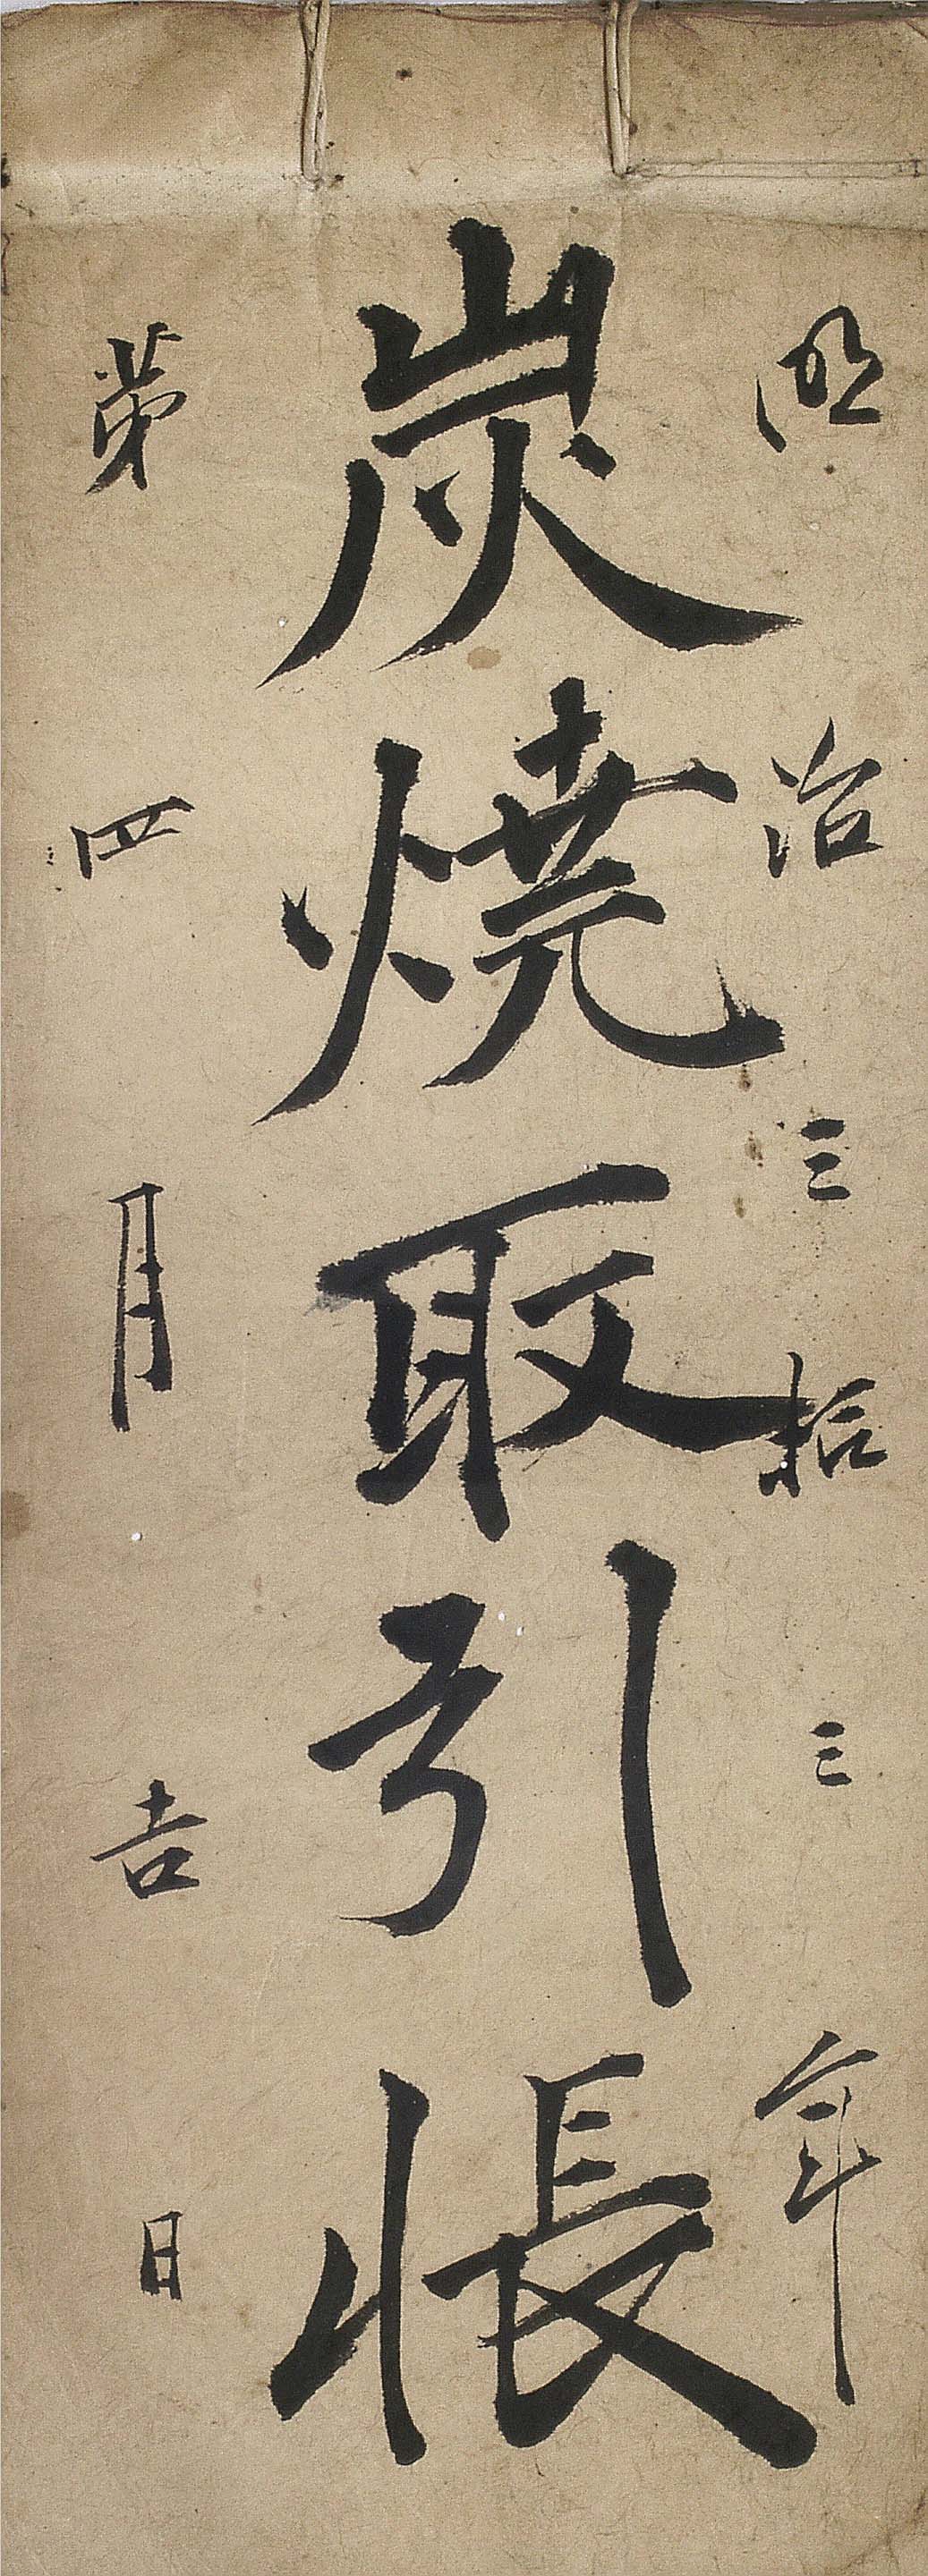 明治三拾三年
炭焼取引帳
第四月吉日